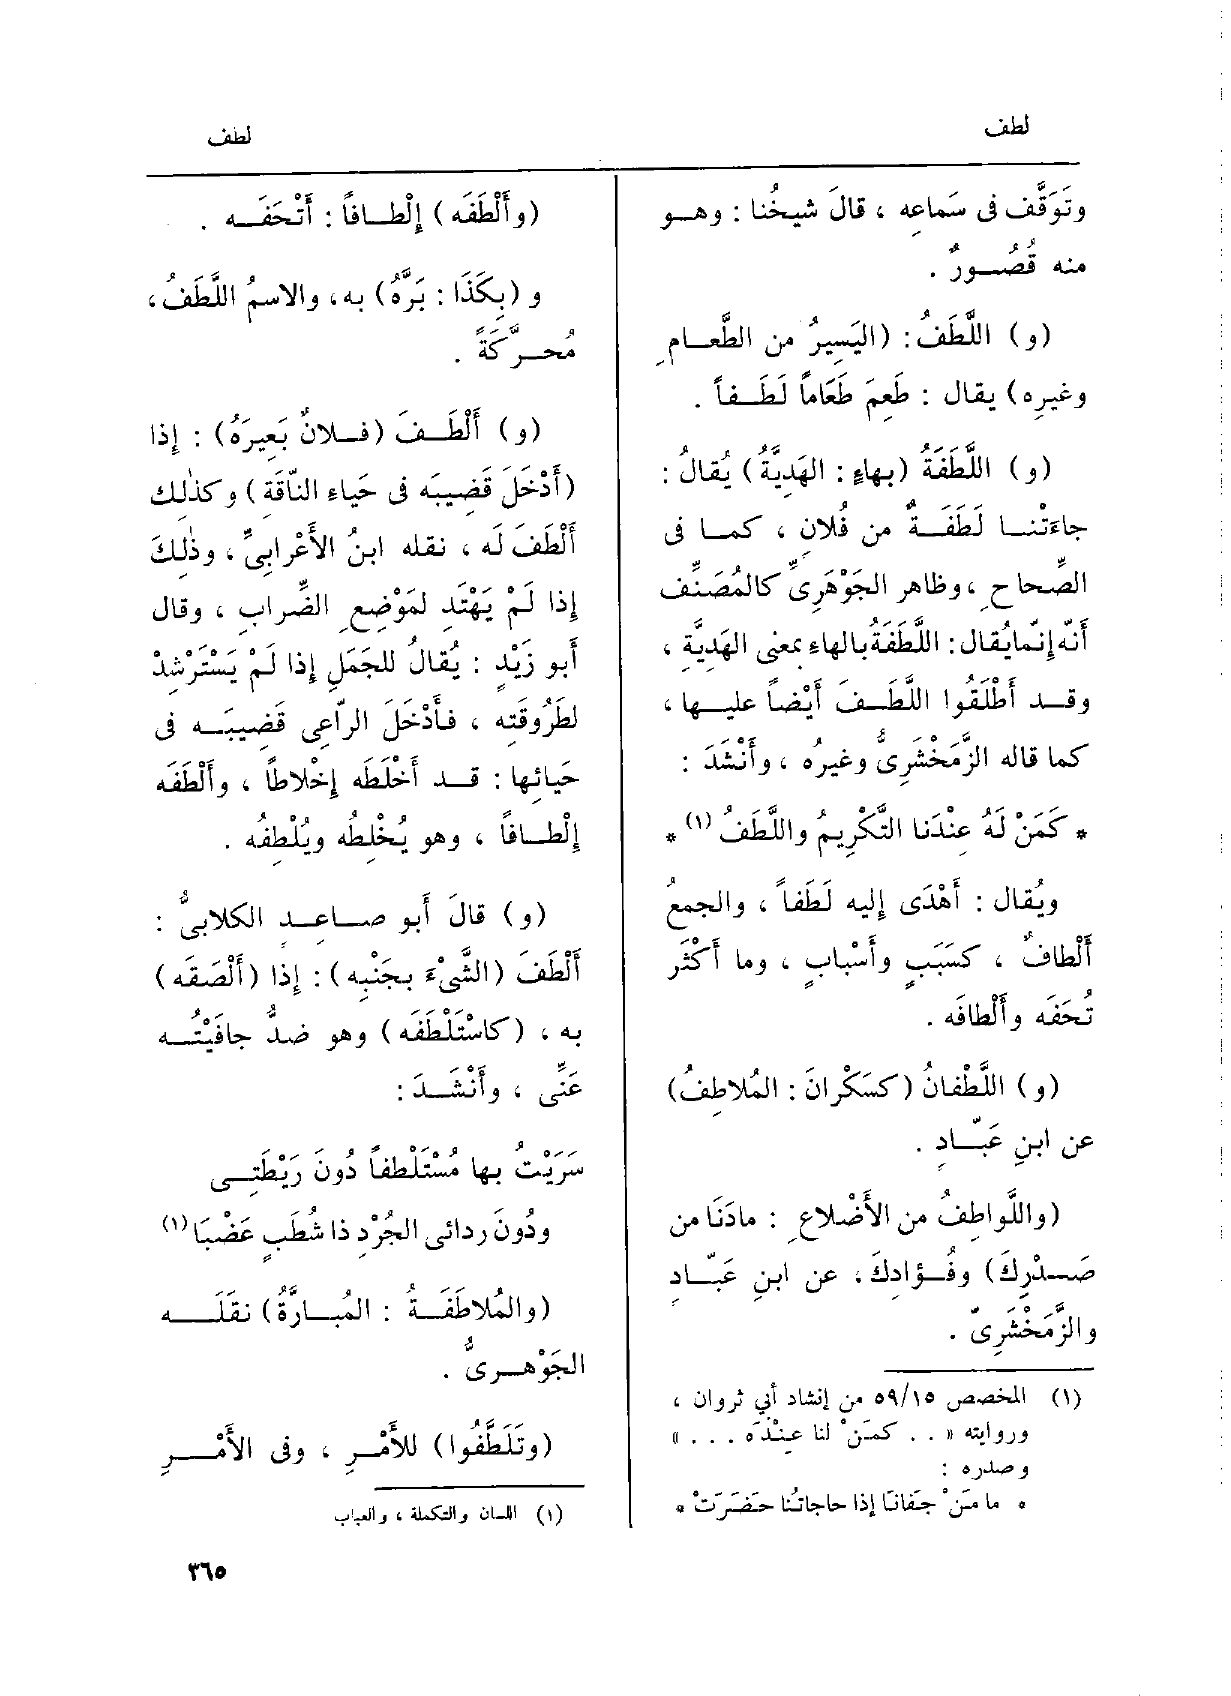 لطف
لطف
وتَوَقَّف فى سَماعِه ، قالَ شيخُنا : وهـو
منه قُصُـورٌ .
(و) اللَّطَفُ : (اليَسِيرُ من الطَّعـامِ
وغيرِه) يقال : طَعِمَ طَعَاماً لَطَـفاً .
(و) اللَّطَفَةُ (بهاءٍ : الهَدِيَّةُ) يُقالُ :
جاءَتْنـا لَطَفَـةٌ من فُلان ، كمـا فى
الصِّحاحِ ، وظاهر الجَوْهَرِىِّ كالمُصَنِّف
أنّه إنّما يُقال : اللَّطَفَةُ بالهاءِ بمعنى الهَدِيَّةِ ،
وقـد أَطْلَقُوا اللَّطَـفَ أَيْضاً عليـها ،
كما قاله الزَّمَخْشَرِىُّ وغيرُه ، وأَنْشَدَ :
* كَمَنْ لَهُ عِنْدَنا التَّكْرِيمُ واللَّطَفُ (١) *
ويُقال : أَهْدَى إليه لَطَفاً ، والجمعُ
أَلْطافٌ ، كسَبَبٍ وأَسْبابٍ ، وما أَكْثَر
تُحَفَه وأَلْطافَه .
(و) اللَّطْفانُ (كسَكْرانَ : المُلاطِفُ)
عن ابنِ عَبّـادِ .
(واللَّواطِفُ من الأَضْلاعِ : مادَنَا من
صَـدْرِكَ) وفُـؤادِكَ ، عن ابنِ عَبّـادِ
والزَّمَخْشَرِىّ .
(١) المخصص ٥٩/١٥ من إنشاد أبي ثروان ،
وروايته « . . كمَنْ لنا عِنْدَه . . . »
وصدره :
* ما مَنْ جَفانَا إذا حاجاتُنا حَضَرَتْ *
(وأَلْطَفَه) إلْطـافاً : أَتْحَفَـه .
و (بِكَذَا : بَرَّهُ) به ، والاسمُ اللَّطَفُ ،
مُحـرَّكَةً .
(و) أَلْطَـفَ (فـلانٌ بَعِيرَهُ) : إذا
(أَدْخَلَ قَضِيبَه فى حَياءِ النّاقَةِ) وكذٰلِك
أَلْطَفَ لَه ، نقله ابنُ الأَعْرابىِّ ، وذٰلِكَ
إذا لَمْ يَهْتَدِ لمَوْضِعِ الضِّرابِ ، وقال
أبو زَيْدٍ : يُقالُ للجَمَلِ إذا لَمْ يَسْتَرْشِدْ
لطَرُوقَتِه ، فـأَدْخَلَ الرّاعِى قَضِيبَـه فى
حَيائِها : قـد أَخْلَطَه إخْلاطاً ، وأَلْطَفَه
إلْطـافاً ، وهو يُخْلِطُه ويُلْطِفُه .
(و) قالَ أَبو صـاعِـد الكلابىُّ :
أَلْطَفَ (الشَّىْءَ بجَنْبِه) : إذا (أَلْصَقَه)
به ، (كاسْتَلْطَفَه) وهو ضدُّ جافَيْتُـه
عَنِّى ، وأَنْشَـدَ :
سَرَيْتُ بها مُسْتَلْطفاً دُونَ رَيْطَتِـى
ودُونَ ردائى الجُرْدِ ذا شُطَبٍ عَضْبَا (١)
(والمُلاطَفَـةُ : المُبـارَّةُ) نقَلَـه
الجَوْهَـرِىُّ .
(وتَلَطَّفُوا) للأَمْـرِ ، وفى الأَمْـرِ
(١) اللسان والتكملة ، والعباب
٣٦٥